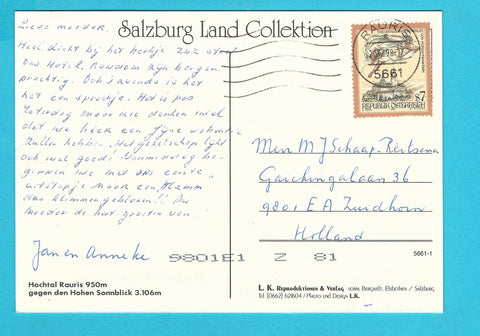 Salzburg Land Collektion
Lieve moeder.
Heel dicht bij het kerkje zoz staat
ons Hotel. Rondom zijn bergen
prachtig. Ook 's avonds is het
het een sprookje. Het is pas
Zaterdag maar we denken wel
dat we hier een fijne vakantie
zullen hebben. Het gezelschap lijkt
ook wel goed. Vanmiddag be-
ginnen we met ons eerste
uitstapje naar een "Klamm
das Kimmen geblosen"!. Nu
moeder de hart. groeten van
Jan en Anneke
Hochtal Rauris 950m
gegen den Hohen Sonnblick 3.106m
RAURIS
5661
REPUBLIK ÖSTERREICH
S7
Mevr. M J Schaap-Reitsema
Gauckingalaan 36
9801 E A Zuidhorn
Holland
9801E1 Z 81
5661-1
L. K. Reproduktionen & Verlag VORM. BERGWELT, Elsbethen / Salzburg
Tel. (0662) 62804 / Photo und Design L.K.